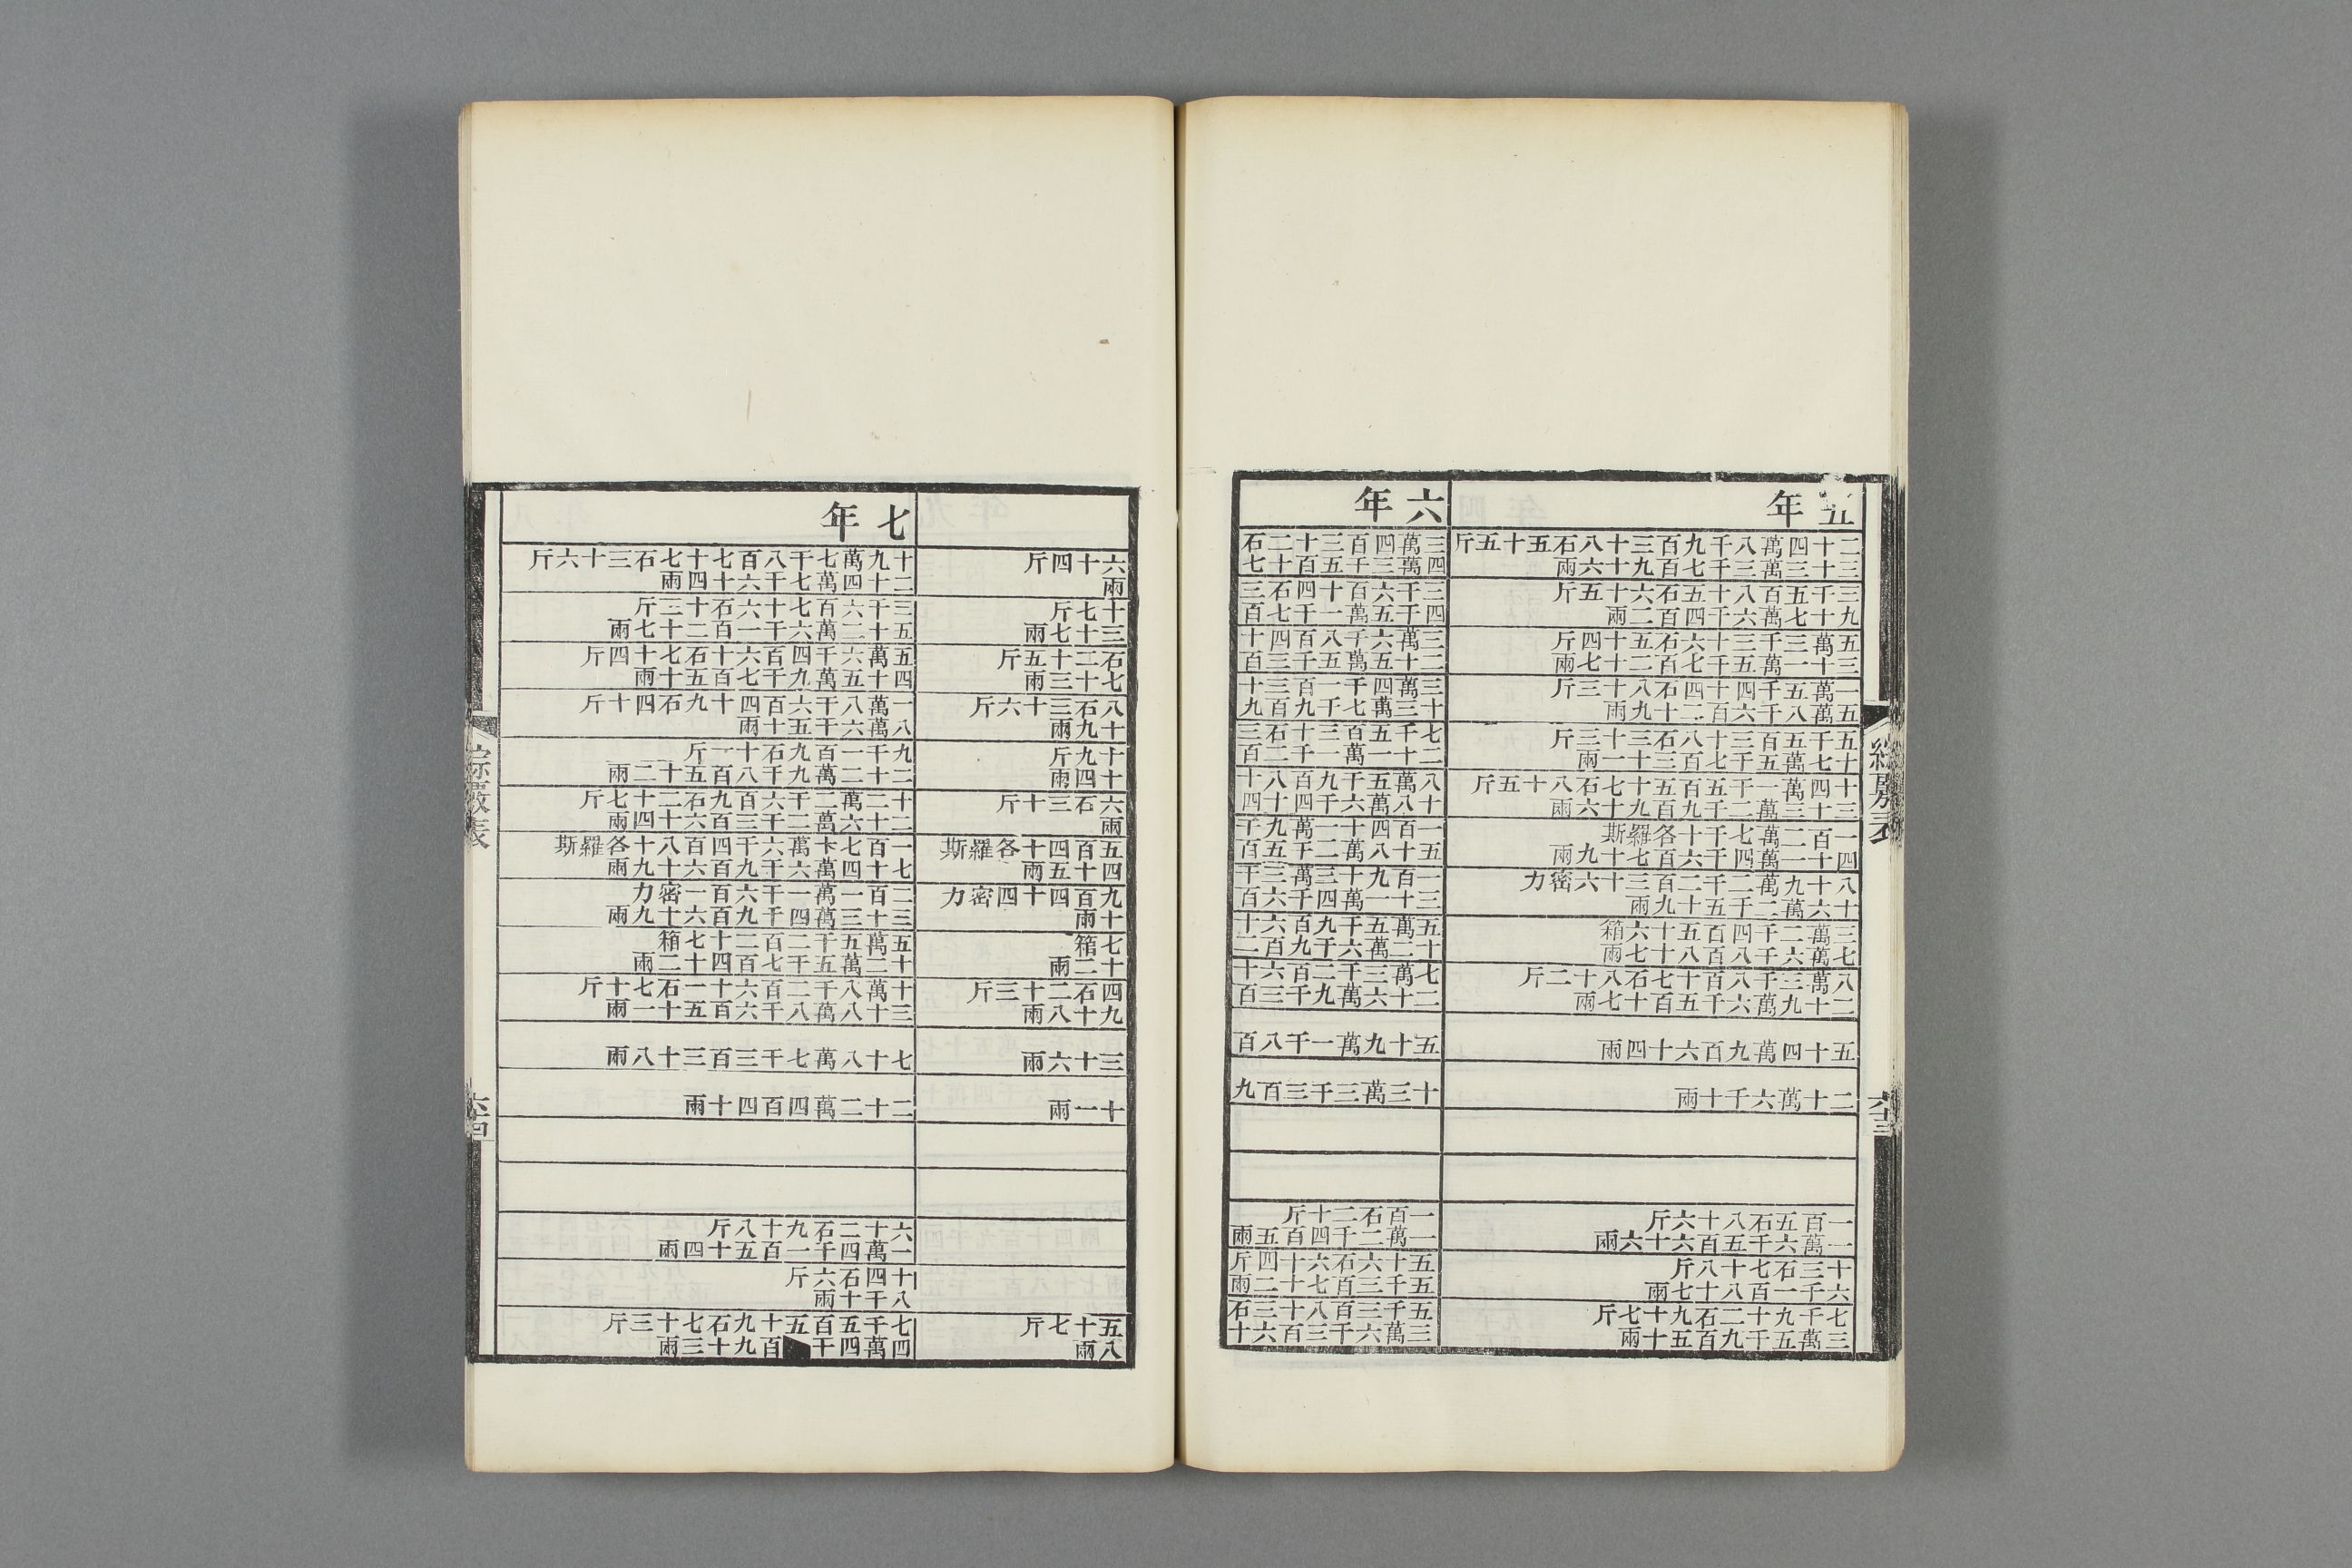 五年
二十四萬八千九百三十八石五十五斤
三十三萬三千七百九十六兩
三千五百八十五石六十五斤
九十七萬六千四百二兩
五萬三千三十六石五十四斤
三十一萬五千七百二十七兩
一萬五千四十四石八十三斤
五萬八千六百二十九兩
五千五百三十八石三十三斤
十七萬五千七百三十一兩
十四萬一千五百五十七石八十五斤
三十三萬二千九百九十六兩
一百二萬七千十各羅斯
四十一萬四千六百七十九兩
八十九萬二千二百三十六密力
十六萬二千五十九兩
三萬二千四百五十六箱
七萬六千八百八十七兩
八萬三千八百十七石八十二斤
二十九萬六千五百十七兩
五十四萬九百六十四兩
二十萬六千十兩
一百五石八十六斤
一萬六千五百六十六兩
十三石七十八斤
六千一百八十七兩
七千九十二石九十七斤
三萬五千九百五十兩
六年
三萬四百三十二石
四萬三千五百十七
三千六百十四石三
四千五萬一千七百
三萬六千八百四十
二十五萬五千三百
三萬四千一百三十
十三萬七千九百九
七千五百三十石三
二十一萬一千二百
八萬五千九百八十
十八萬六千四十四
一百四十二萬九千
五十八萬二千五百
一百九十三萬三千
三十一萬四千六百
五萬五千九百六十
十二萬六千九百二
七萬三千二百六十
二十六萬九千三百
五十九萬一千八百
十三萬三千三百九
一百石二十斤
一萬二千四百五兩
五十六石六十四斤
五千三百七十二兩
五千三百八十三石
三萬六千三百六十
六十四斤
兩
十七斤
三十七兩
石二十五斤
七十三兩
八石三十六斤
十九兩
十九斤
十四兩
六石三十斤
兩
五百四十各羅斯
四十五兩
九百四十四密力
十兩
七箱
十二兩
四石二十三斤
九十八兩
三十六兩
十一兩
五十七斤
八兩
七年
十九萬七千八百七十七石三十六斤
二十四萬七千六十四兩
三千六百七十六石十三斤
五十二萬六千一百二十七兩
五萬六千四百六十石七十四斤
四十五萬九千七百五十兩
一萬八千六百四十九石四十斤
八萬六千五十兩
九千一百九石十一斤
二十二萬九千八百五十二兩
十二萬二千六百九石二十七斤
二十六萬二千三百六十四兩
一百七十萬六千四百八十各羅斯
七十四萬六千九百六十九兩
二百一萬一千六百一密力
三十三萬四千九百六十九兩
五萬五千二百二十七箱
十二萬五千七百四十二兩
十萬八千二百六十一石七十斤
三十八萬八千六百五十一兩
七十八萬七千三百三十八兩
二十二萬四百四十兩
六十二石九十八斤
一萬四千一百五十四兩
十四石六斤
八千十兩
七千五百五十九石七十三斤
四萬四千百九十三兩
綜覈表
六十四